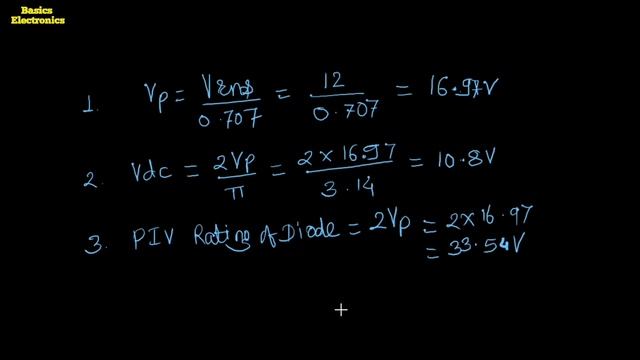 Basics
Electronics
1. Vp = Vrms/0.707 = 12/0.707 = 16.97V
2. Vdc = 2Vp/π = 2×16.97/3.14 = 10.8V
3. PIV Rating of Diode = 2Vp = 2×16.97
= 33.54V